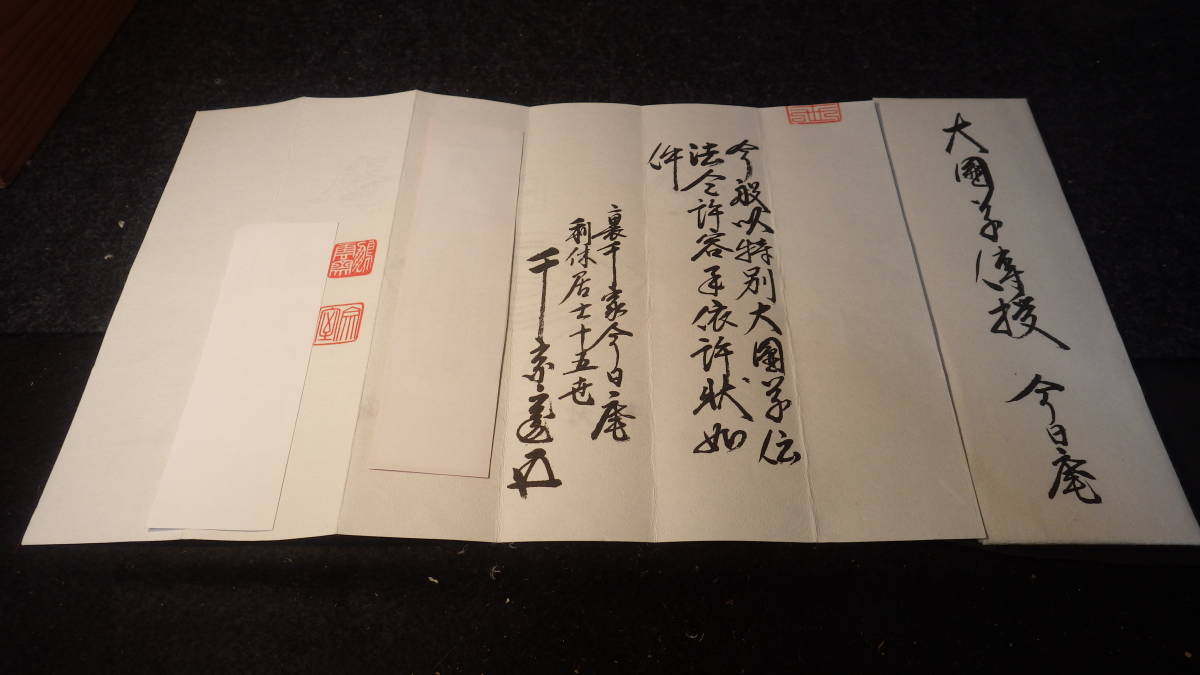 大圓草傳授 今日庵
今般以特別大圓草伝
法令許容畢依許状如
件
裏千家今日庵
利休居士十五世
千宗室
鵬雲斎
宗室